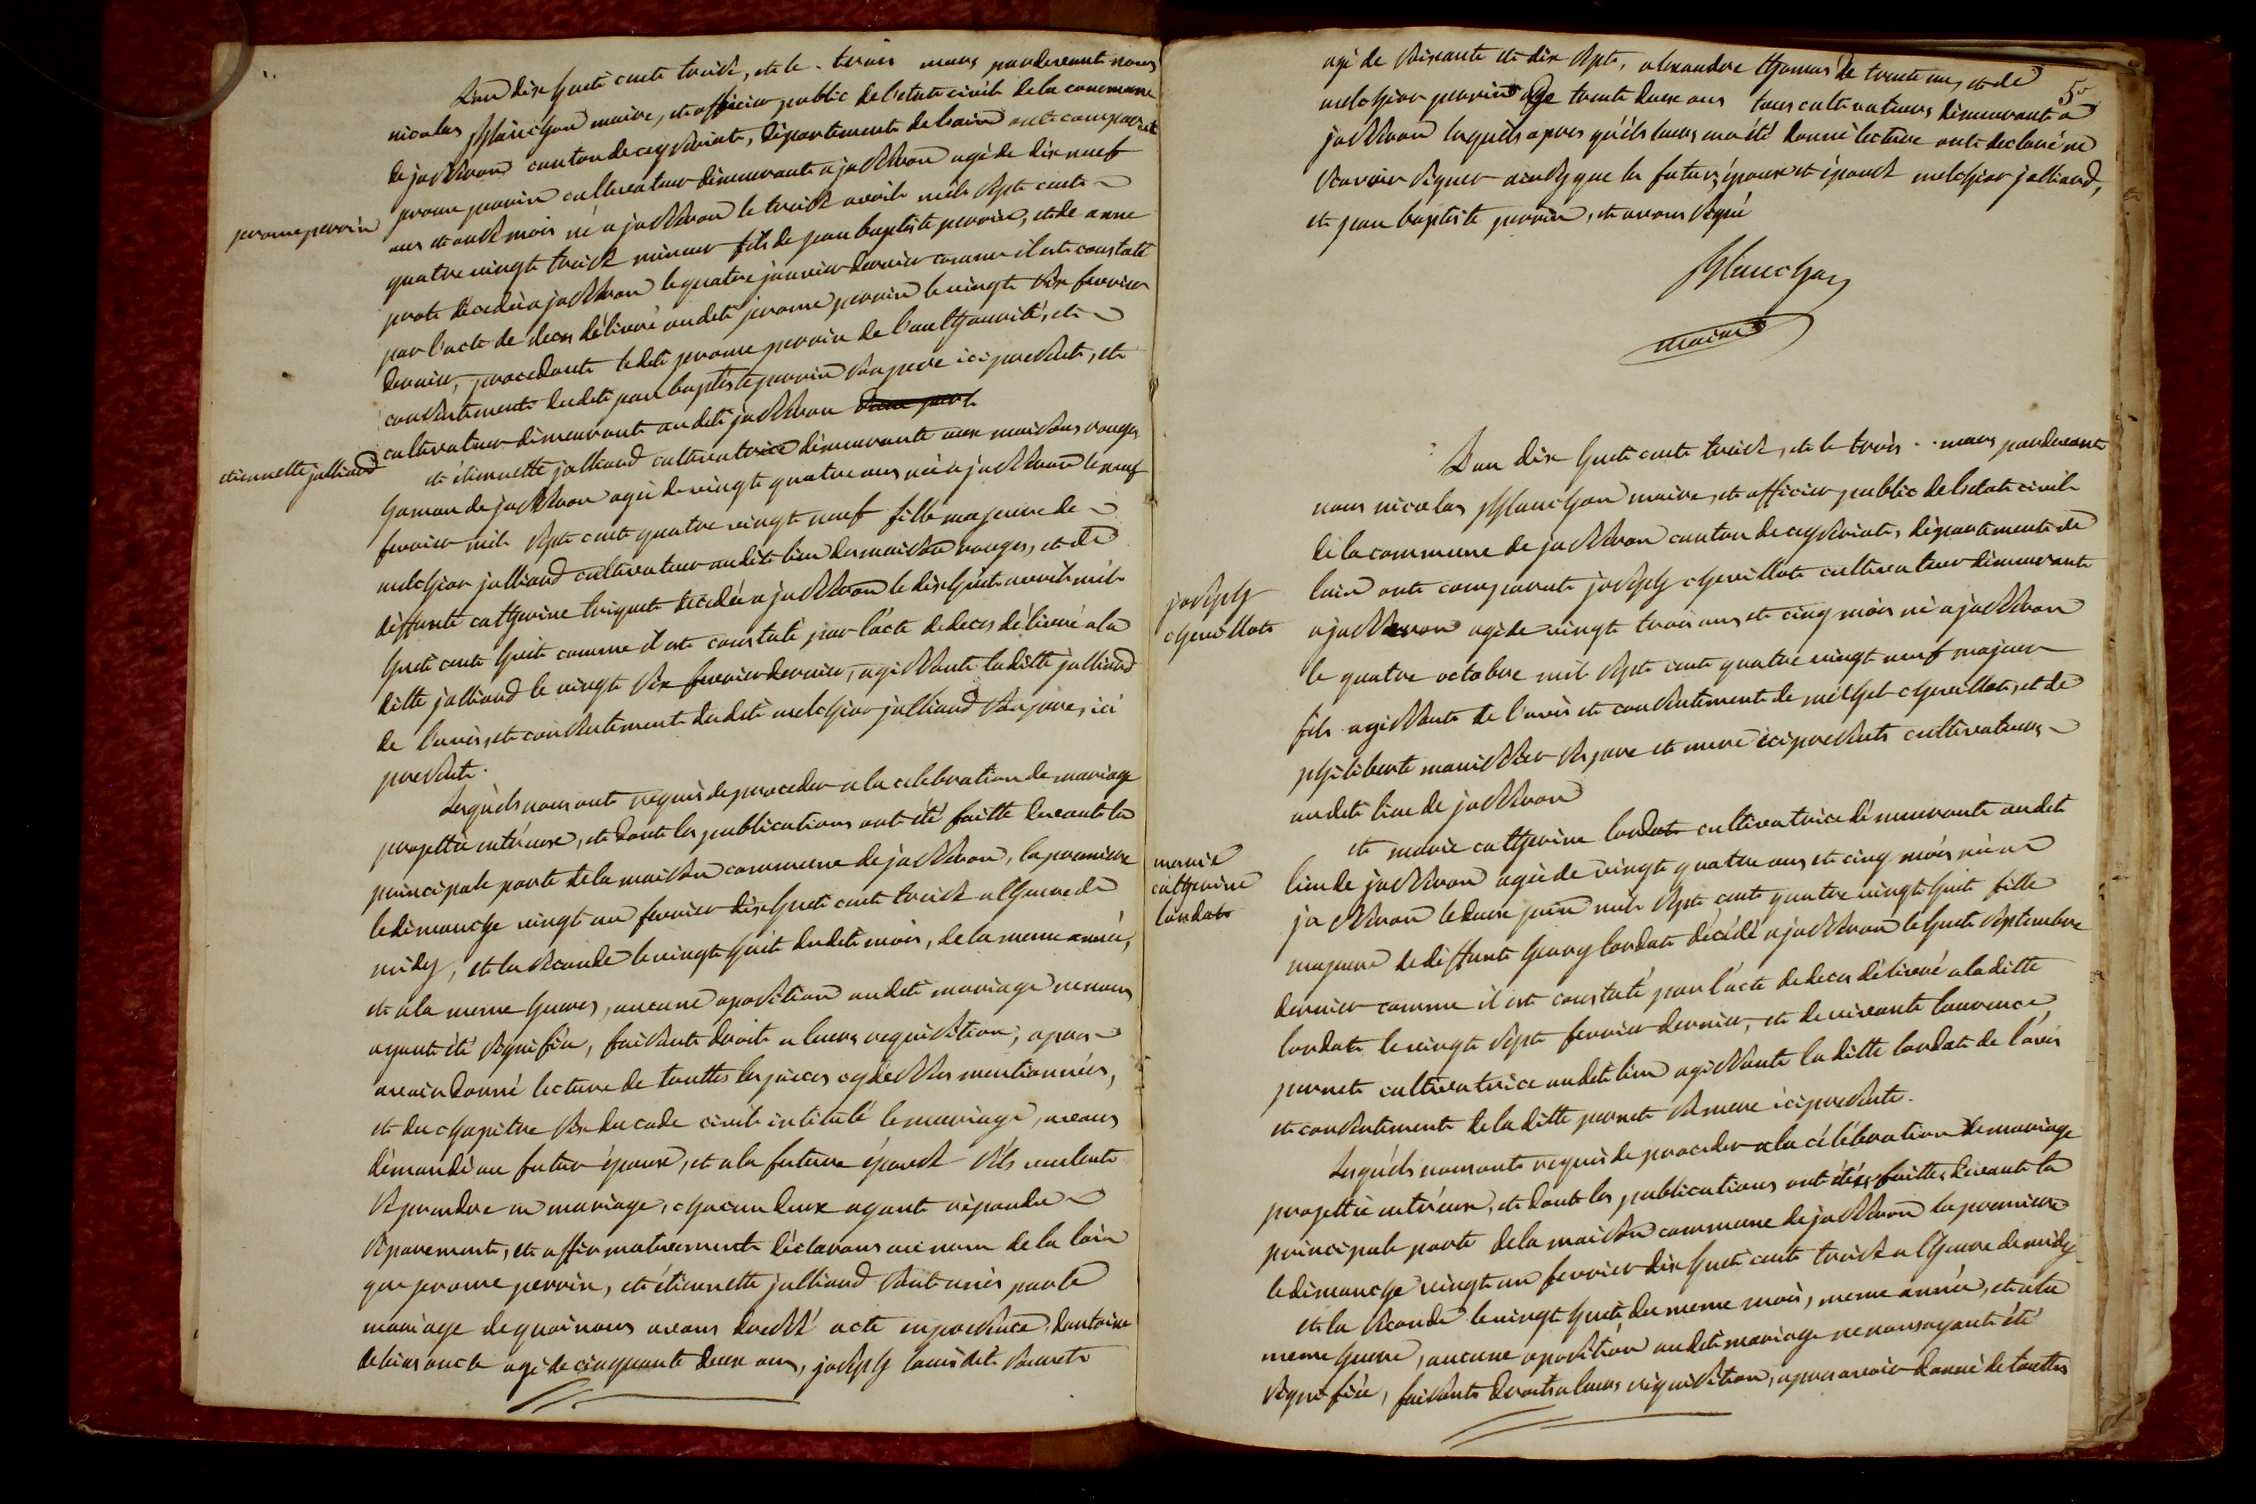 L'an dix huit cent treize, et le trois mars pardevant nous
nicolas Planchon maire, et officier public de l'état civil de la commune
de jasseron canton de ceyseriat, département de l'ain ont comparut
jerome perrin
jerome perrin cultivateur démeurant a jasseron agé de dix neuf
ans et onze mois né a jasseron le treize avril mil sept cent
quatre vingt treize mineur fils de jean baptiste perrin, et de anne
prost décédée a jasseron le quatre janvier dernier comme il est constaté
par l'acte de deces délivré au dit jerome perrin le vingt six fevrier
dernier, procedant le dit jerome perrin de l'authourité, et
consentement du dit jean baptiste perrin son pere ici present, et
cultivateur démeurant au dit jasseron d'une part
etiennette jalliard
et étiennette jalliard cultivatrice démeurante aux maisons rouges
hamau de jasseron agée de vingt quatre ans née a jasseron le neuf
fevrier mil sept cent quatre vingt neuf fille majeure de
melchior jalliard cultivateur au dit lieu des maison rouges, et de
déffunte catherine briquet décédée a jasseron le dix huit avril mil
huit cent huit comme il est constaté par l'acte de deces délivré a la
ditte jalliard le vingt six fevrier dernier, agissante la ditte jalliard
de l'avis, et consentement du dit melchior jalliard son pere, ici
present.
Lesquels nous ont requis de proceder a la celebration de mariage
projetté entr'eux, et dont les publications ont été faitte devant la
principale porte de la maison commune de jasseron, la premiere
le dimanche vingt un fevrier dix huit cent treize a l'heure de
midy, et la seconde le vingt huit du dit mois, de la meme année,
et a la meme heures, aucune oposition au dit mariage ne nous
ayant été signifiée, faisant droit a leurs requisition, apres
avoir donné lecture de touttes les pieces cy dessus mentionnées,
et du chapitre six du code civil intitulé le mariage, avons
démandé au futur époux, et a la future épouse s'ils veulent
se prendre en mariage, chacun d'eux ayant répondu
séparement, et affirmativement déclarons au nom de la loix
que jerome perrin, et étiennette jalliard sont unis par le
mariage de quoi nous avons dressé acte en presence d'antoine
debiasoncle agé de cinquante deux ans, joseph louis dit secret
agé de soixante et dix sept, alexandre thomas de trente ans, et de
50
melchior perrin agé trente deux ans tous cultivateurs démeurant a
jasseron lesquels apres qu'ils leurs en a été donné lecture ont declaré ne
scavoir signer ainsy que les futurs époux et épouse melchior jalliard,
et jean baptiste perrin, et avons signé
Planchon
maire
L'an dix huit cent treize, et le trois mars pardevant
nous nicolas Planchon maire, et officier public de l'état civil
de la commune de jasseron canton de ceyseriat, département de
joseph
chevillot
l'ain ont comparut joseph chevillot cultivateur démeurant
a jasseron agé de vingt trois ans, et cinq mois né a jasseron
le quatre octobre mil sept cent quatre vingt neuf majeur
fils agissant de l'avis et consentement de michel chevillot, et de
philiberte manissier ses pere et mere ici presents cultivateurs
au dit lieu de jasseron
marie
catherine
londat
et marie catherine londat cultivatrice démeurante au dit
lieu de jasseron agée de vingt quatre ans et cinq mois née a
jasseron le deux juin mil sept cent quatre vingt huit fille
majeure de déffunt henry londat décédé a jasseron le huit septembre
dernier comme il est constaté par l'acte de deces délivré a la ditte
londat le vingt sept fevrier dernier, et de vivante laurence
pernet cultivatrice au dit lieu agissante la ditte londat de l'avis
et consentement de la ditte pernet sa mere ici presente.
Lesquels nous ont requis de proceder a la célébration de mariage
projetté entr'eux, et dont les publications ont étés faittes devant la
principale porte de la maison commune de jasseron la premiere
le dimanche vingt un fevrier dix huit cent treize a l'heure de midy
et la seconde le vingt huit du meme mois, meme année, et a la
meme heure, aucune oposition au dit mariage ne nous ayant été
signifiée, faisant droits a leurs requisition, apres avoir donné de touttes